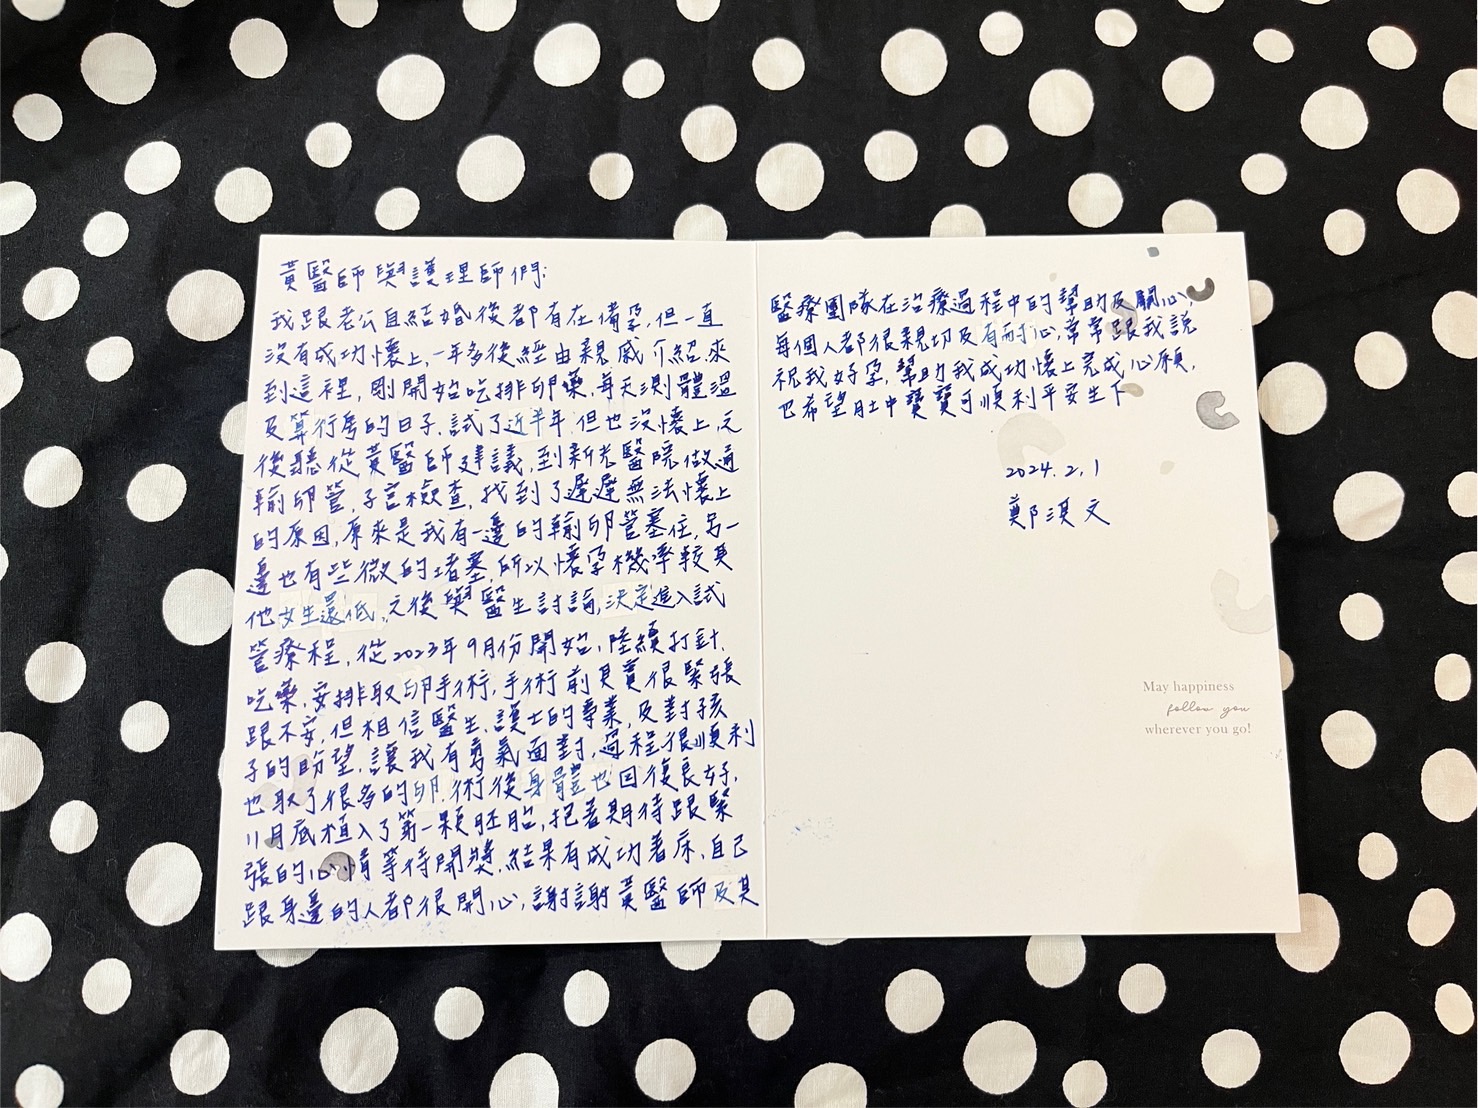 黃醫師與護理師們:
我跟老公自結婚後都有在備孕,但一直
沒有成功懷上,一年多後經由親戚介紹來
到這裡,剛開始吃排卵藥,每天測體溫
及算行房的日子,試了近半年,但也沒懷上,之
後聽從黃醫師建議,到新光醫院做通
輸卵管,子宮檢查,找到了遲遲無法懷上
的原因,原來是我有一邊的輸卵管塞住,另一
邊也有些微的堵塞,所以懷孕機率較其
他女生還低,之後與醫生討論,決定進入試
管療程,從2023年9月份開始,陸續打針、
吃藥、安排取卵手術,手術前其實很緊張
跟不安,但相信醫生、護士的專業,及對孩
子的盼望,讓我有勇氣面對,過程很順利
也取了很多的卵,術後身體也回復良好,
11月底植入了第一顆胚胎,抱著期待跟緊
張的心情等待開獎,結果有成功著床,自己
跟身邊的人都很開心,謝謝黃醫師及其
醫療團隊在治療過程中的幫助及關心,
每個人都很親切及有耐心,常常跟我說
祝我好孕,幫助我成功懷上完成心願,
也希望肚中寶寶可順利平安生下
2024.2.1
鄭淇文
May happiness
follow you
wherever you go!